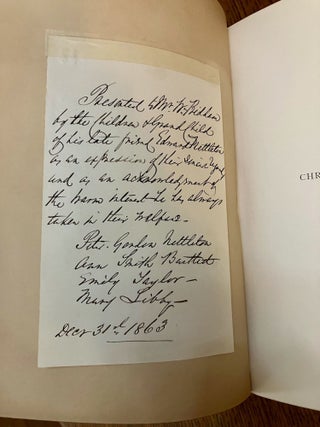 Presented to Mr. Wm
by the Children & Grand Child
of his late friend Edward Nettleton
as an expression of their
and as an acknowledgment of
the warm interest he has always
taken in their welfare -
Gordon Nettleton
Ann Smith Bartlett
Emily Taylor -
Mary Libby -
Decr 31st 1863
CHR